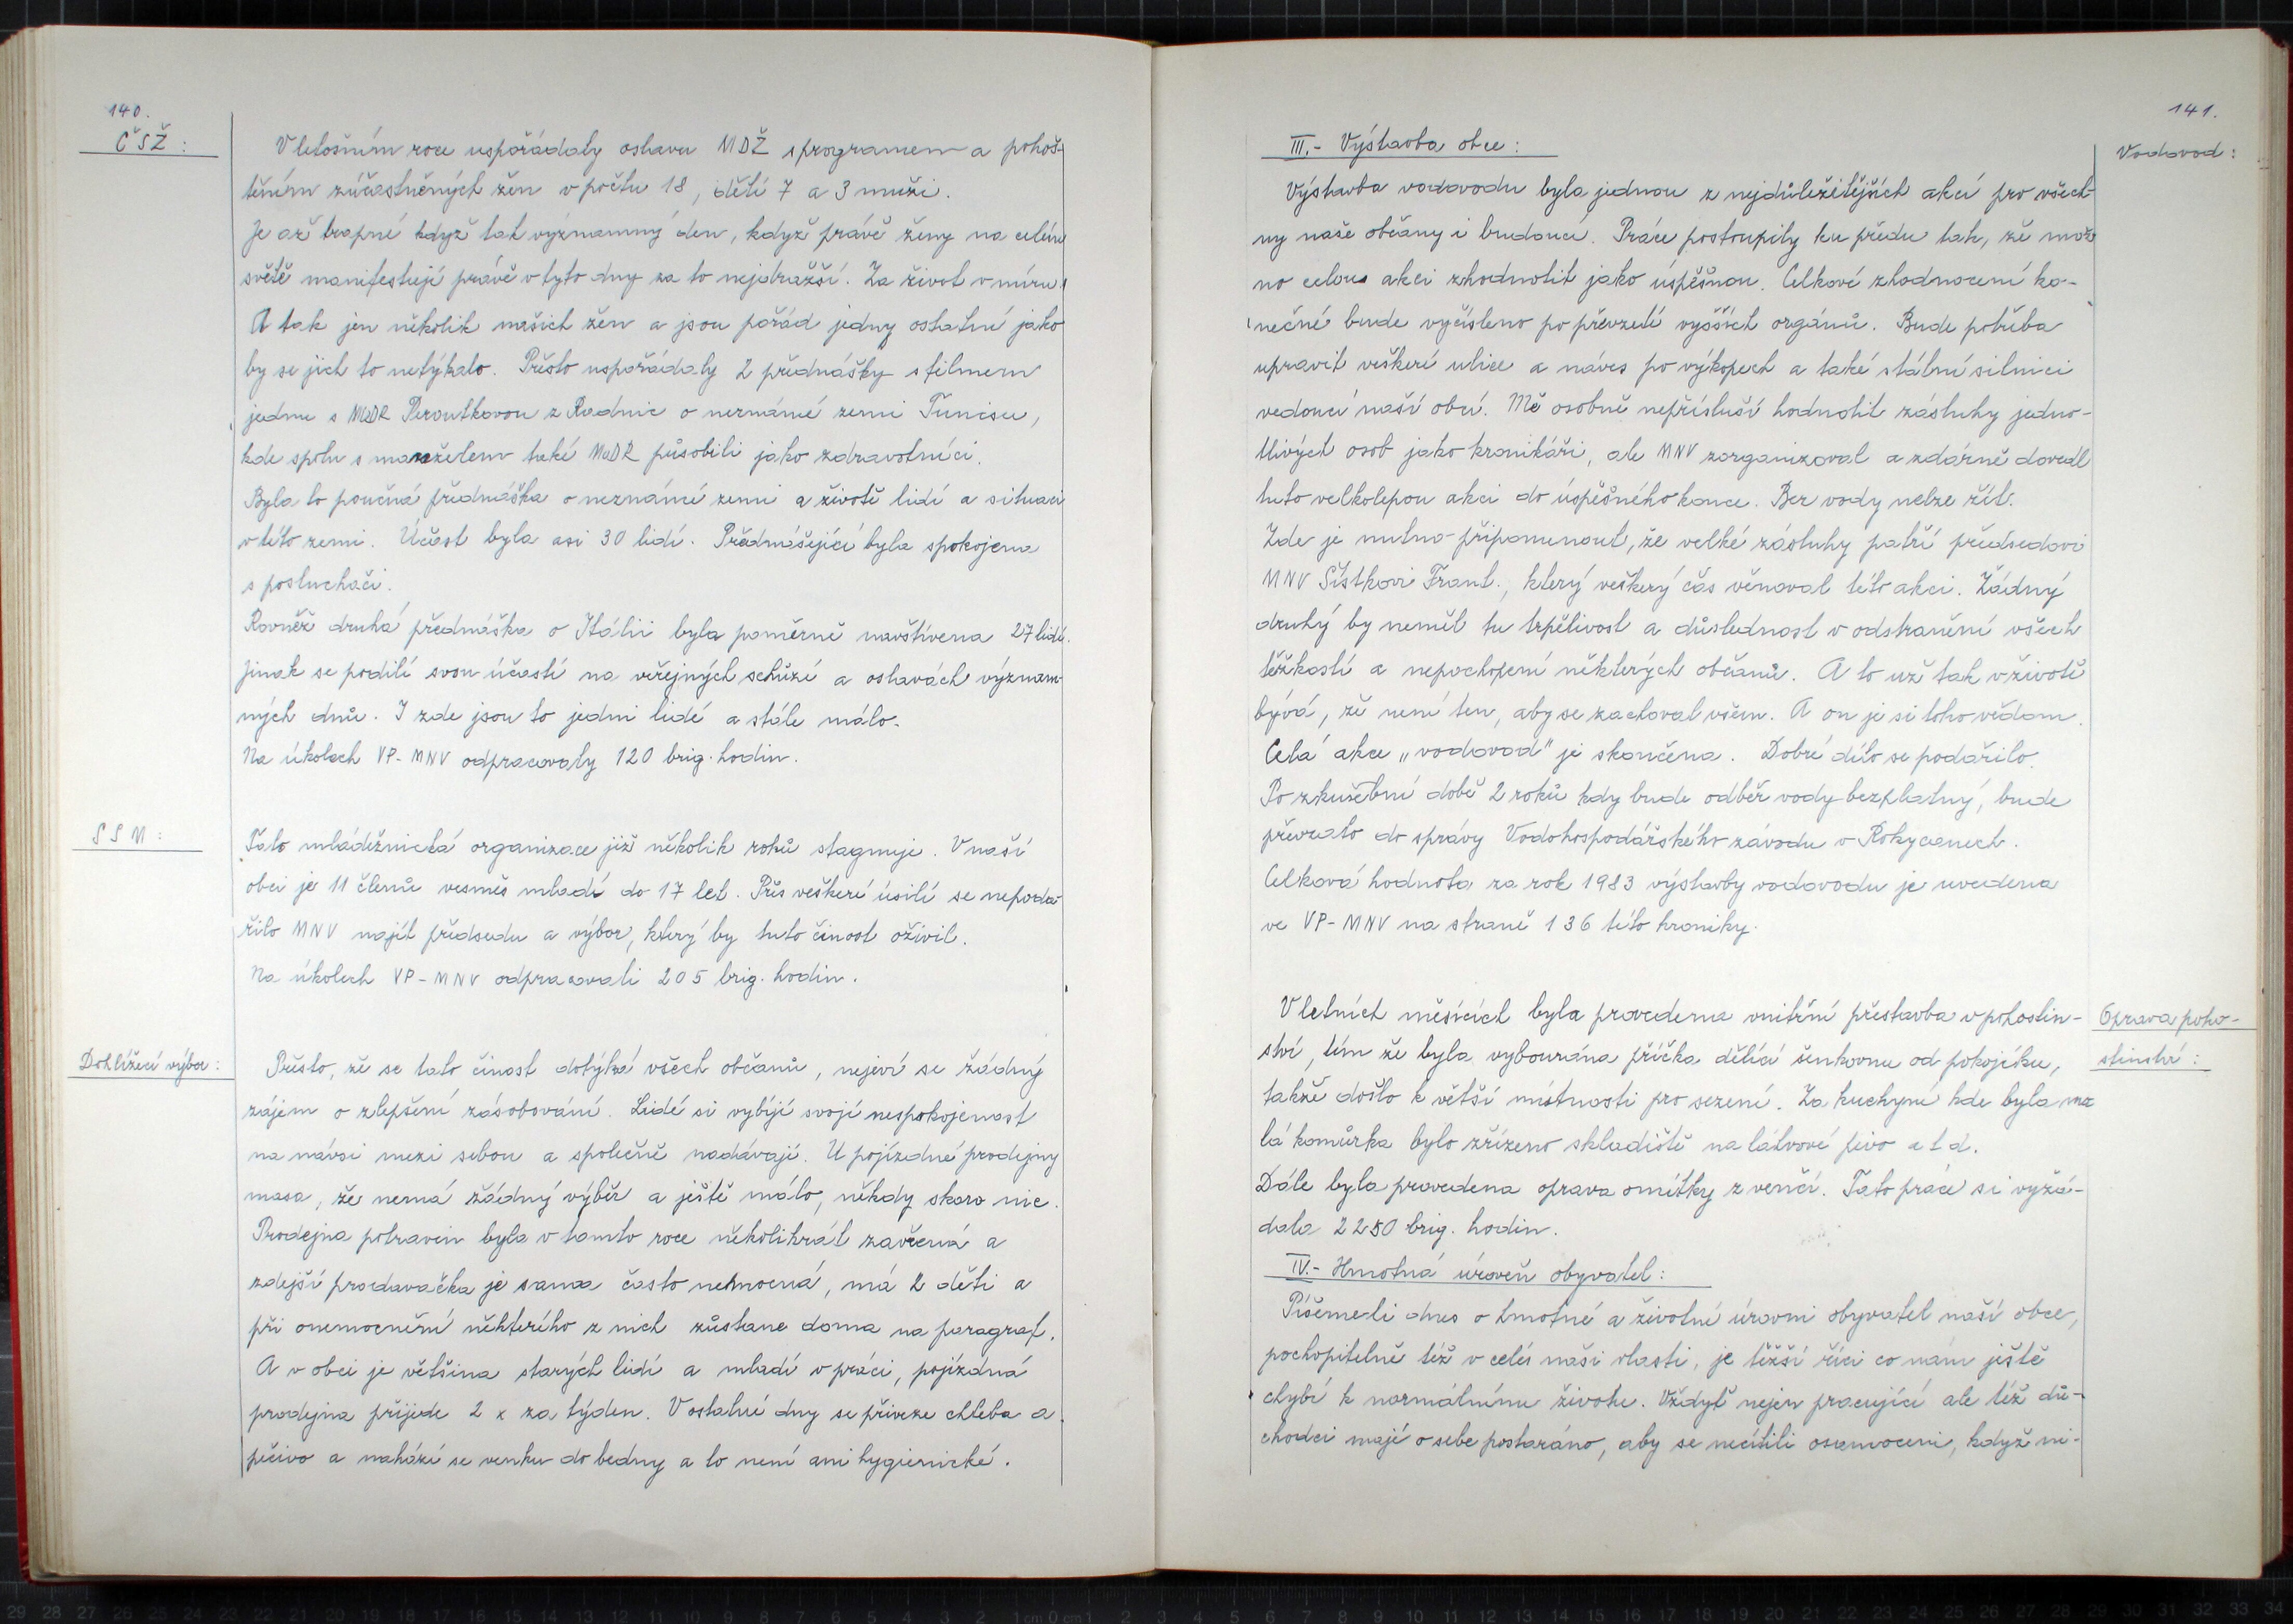 140.
ČSŽ:
V letošním roce uspořádaly oslavu MDŽ s programem a pohoš-
těním zúčastněných žen v počtu 18, dětí 7 a 3 muži.
Je až trapné když tak významný den, když právě ženy na celém
světě manifestují právě v tyto dny za to nejdražší. Za život v míru.
A tak jen několik našich žen a jsou pořád jedny ostatní jako
by se jich to netýkalo. Přesto uspořádaly 2 přednášky s filmem
jednu s MUDR Peroutkovou z Radnic o neznámé zemi Tunisu,
kde spolu s manželem také MUDR působili jako zdravotníci.
Byla to poučná přednáška o neznámé zemi a životě lidí a situaci
v této zemi. Účast byla asi 30 lidí. Přednášející byla spokojena
s posluchači.
Rovněž druhá přednáška o Itálii byla poměrně navštívena 27 lidí.
Jinak se podílí svou účastí na veřejných schůzí a oslavách význam-
ných dnů. I zde jsou to jedni lidé a stále málo.
Na úkolech VP-MNV odpracovaly 120 brig. hodin.
SSM:
Tato mládežnická organizace již několik roků stagnuje. V naší
obci je 11 členů vesměs mladí do 17 let. Přes veškeré úsilí se nepoda-
řilo MNV najít předsedu a výbor, který by tuto činost oživil.
Na úkolech VP-MNV odpracovali 205 brig. hodin.
Dohlížecí výbor:
Přesto, že se tato činost dotýká všech občanů, nejeví se žádný
zájem o zlepšení zásobování. Lidé si vybíjí svojí nespokojenost
na návsi mezi sebou a společně nadávají. U pojízdné prodejny
masa, že nemá žádný výběr a ještě málo, někdy skoro nic.
Prodejna potravin byla v tomto roce několikrát zavřená a
zdejší prodavačka je sama často nemocná, má 2 děti a
při onemocnění některého z nich zůstane doma na paragraf.
A v obci je většina starých lidí a mladí v práci, pojízdná
prodejna přijede 2 x za týden. V ostatní dny se přiveze chleba a
pečivo a nahází se venku do bedny a to není ani hygienické.
141.
III.- Výstavba obce:
Vodovod:
Výstavba vodovodu byla jednou z nejdůležitějších akcí pro všech-
ny naše občany i budoucí. Práce postoupily ku předu tak, že mož-
no celou akci zhodnotit jako úspěšnou. Celkové zhodnocení ko-
nečné bude vyčísleno po převzetí vyšších orgánů. Bude potřeba
upravit veškeré ulice a náves po výkopech a také státní silnici
vedoucí naší obcí. Mě osobně nepřísluší hodnotit zásluhy jedno-
tlivých osob jako kronikáři, ale MNV zorganizoval a zdárně dovedl
tuto velkolepou akci do úspěšného konce. Bez vody nelze žít.
Zde je nutno připomenout, že velké zásluhy patří předsedovi
MNV Šístkovi Frant., který veškerý čas věnoval této akci. Žádný
druhý by neměl tu trpělivost a důslednost v odstranění všech
těžkostí a nepochopení některých občanů. A to už tak v životě
bývá, že není ten, aby se zachoval všem. A on je si toho vědom.
Celá akce „vodovod" je skončena. Dobré dílo se podařilo.
Po zkušební době 2 roků kdy bude odběr vody bezplatný, bude
převzato do správy Vodohospodářského závodu v Rokycanech.
Celková hodnota za rok 1983 výstavby vodovodu je uvedena
ve VP-MNV na straně 136 této kroniky.
Oprava poho-
stinství:
V letních měsících byla provedena vnitřní přestavba v pohostin-
ství, tím že byla vybourána příčka dělící šenkovnu od pokojíku,
takže došlo k větší místnosti pro sezení. Za kuchyní kde byla ma
lá komůrka bylo zřízeno skladiště na láhvové pivo a t d.
Dále byla provedena oprava omítky z venčí. Tato práce si vyžá-
dala 2250 brig. hodin.
IV.- Hmotná úroveň obyvatel:
Píšeme-li dnes o hmotné a životní úrovni obyvatel naší obce,
pochopitelně též v celé naši vlasti, je těžší říci co nám ještě
chybí k normálnímu životu. Vždyť nejen pracující ale též dů-
chodci mají o sebe postaráno, aby se necítili osamoceni, když ni-